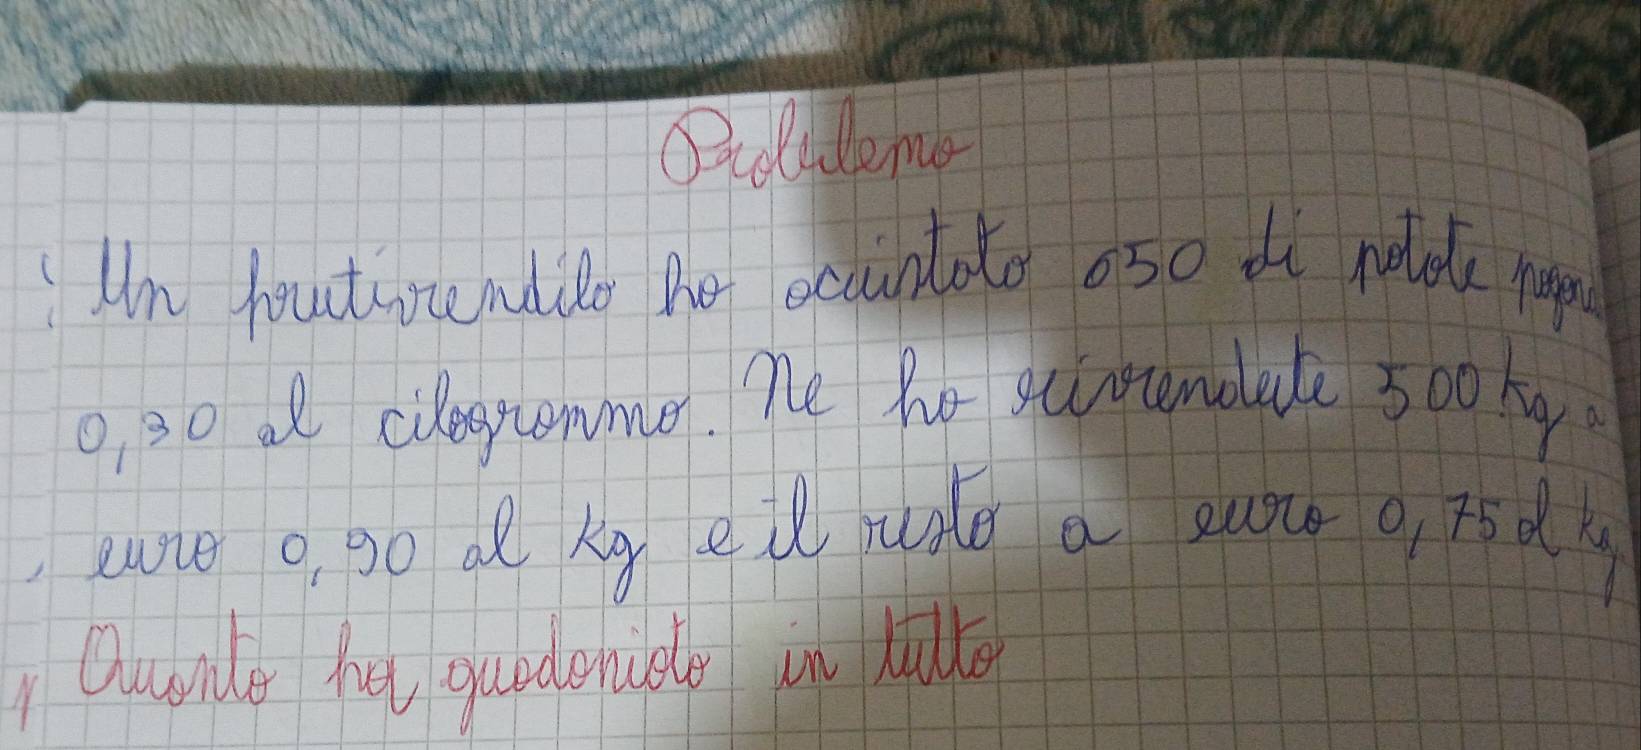 Problema
Un frutivendilo ha acuistato 650 di patate pagand
0,30 al cilogrammo. Ne ha rivendute 500 kg a
euro 0,90 al kg e il resto a euro 0,75 al kg
Quanto ha guadaniato in tutto